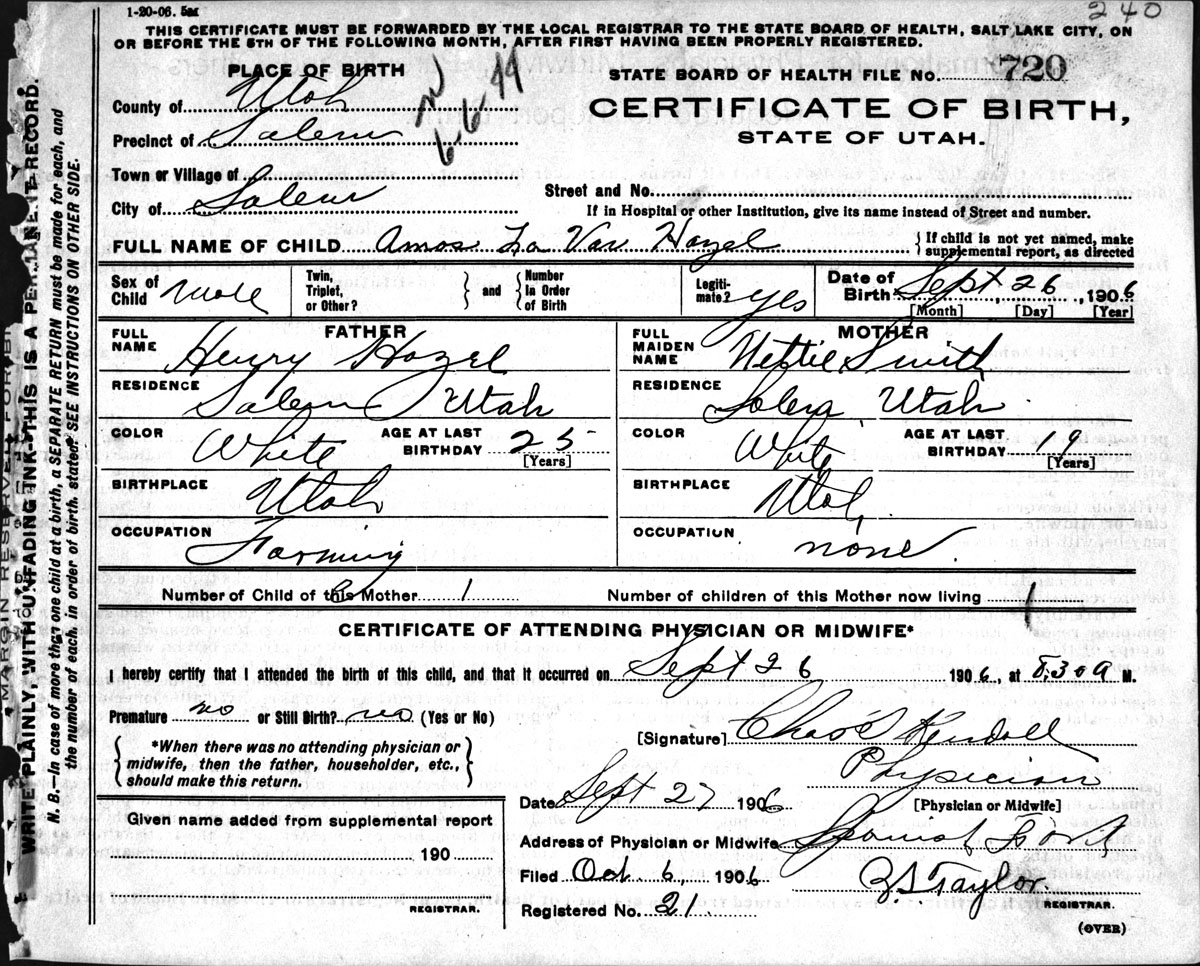 1-20-06. 5m
240
THIS CERTIFICATE MUST BE FORWARDED BY THE LOCAL REGISTRAR TO THE STATE BOARD OF HEALTH, SALT LAKE CITY, ON
OR BEFORE THE 5TH OF THE FOLLOWING MONTH, AFTER FIRST HAVING BEEN PROPERLY REGISTERED.
PLACE OF BIRTH
STATE BOARD OF HEALTH FILE No. 720
County of Utah
6-6-44
CERTIFICATE OF BIRTH,
Precinct of Salem
STATE OF UTAH.
Town or Village of
Street and No.
City of Salem
If in Hospital or other Institution, give its name instead of Street and number.
FULL NAME OF CHILD Amos La Var Hazel
If child is not yet named, make
supplemental report, as directed
Sex of Child male
Twin, Triplet, or Other?
and
Number in Order of Birth
Legiti-mate? yes
Date of Birth Sept 26, 1906
[Month] [Day] [Year]
FATHER
MOTHER
FULL NAME Henry Hazel
FULL MAIDEN NAME Nettie Smith
RESIDENCE Salem Utah
RESIDENCE Salem Utah
COLOR White AGE AT LAST BIRTHDAY 25 [Years]
COLOR White AGE AT LAST BIRTHDAY 19 [Years]
BIRTHPLACE Utah
BIRTHPLACE Utah
OCCUPATION Farming
OCCUPATION none
Number of Child of this Mother 1
Number of children of this Mother now living 1
CERTIFICATE OF ATTENDING PHYSICIAN OR MIDWIFE*
I hereby certify that I attended the birth of this child, and that it occurred on Sept 26 1906, at 8,30 a M.
Premature no or Still Birth? no (Yes or No)
[Signature] Chas Kendall
*When there was no attending physician or
midwife, then the father, householder, etc.,
should make this return.
Physician
Date Sept 27 1906
[Physician or Midwife]
Given name added from supplemental report
Address of Physician or Midwife Spanish Fork
190
Filed Oct. 6, 1906
Taylor.
REGISTRAR.
REGISTRAR.
Registered No. 21.
(OVER)
MARGIN RESERVED FOR BI
WRITE PLAINLY, WITH UNFADING INK—THIS IS A PERMANENT RECORD.
N. B.—In case of more than one child at a birth, a SEPARATE RETURN must be made for each, and
the number of each, in order of birth, stated. SEE INSTRUCTIONS ON OTHER SIDE.